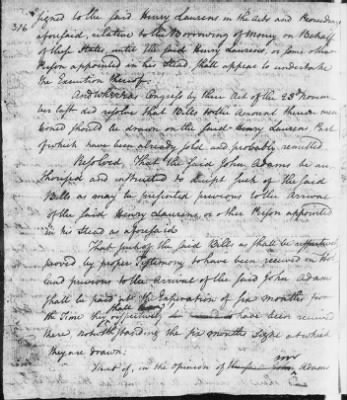 316
signed to the said Henry Laurens in the Acts and Proceedings
aforesaid, relative to the Borrowing of Money on Behalf
of these States, until the said Henry Laurens, or some other
Person appointed in his Stead, shall appear to undertake
the Execution thereof.
And whereas Congress by their Act of the 23d Novem
ber last did resolve that Bills to the Amount therein men
tioned should be drawn on the said Henry Laurens Part
of which have been already sold and probably remitted
Resolved, That the said John Adams be au
thorized and instructed to accept such of the said
Bills as may be presented previous to the Arrival
of the said Henry Laurens, or other Person appointed
in his Stead as aforesaid
That such of the said Bills as shall be respectively
proved by proper Testimony to have been received in Hol
land previous to the Arrival of the said John Adams
shall be paid at the Expiration of six Months from
the Time they respectively shall have been received
there, notwithstanding the six months Sight at which
they are drawn:
That if, in the Opinion of Mr Adams